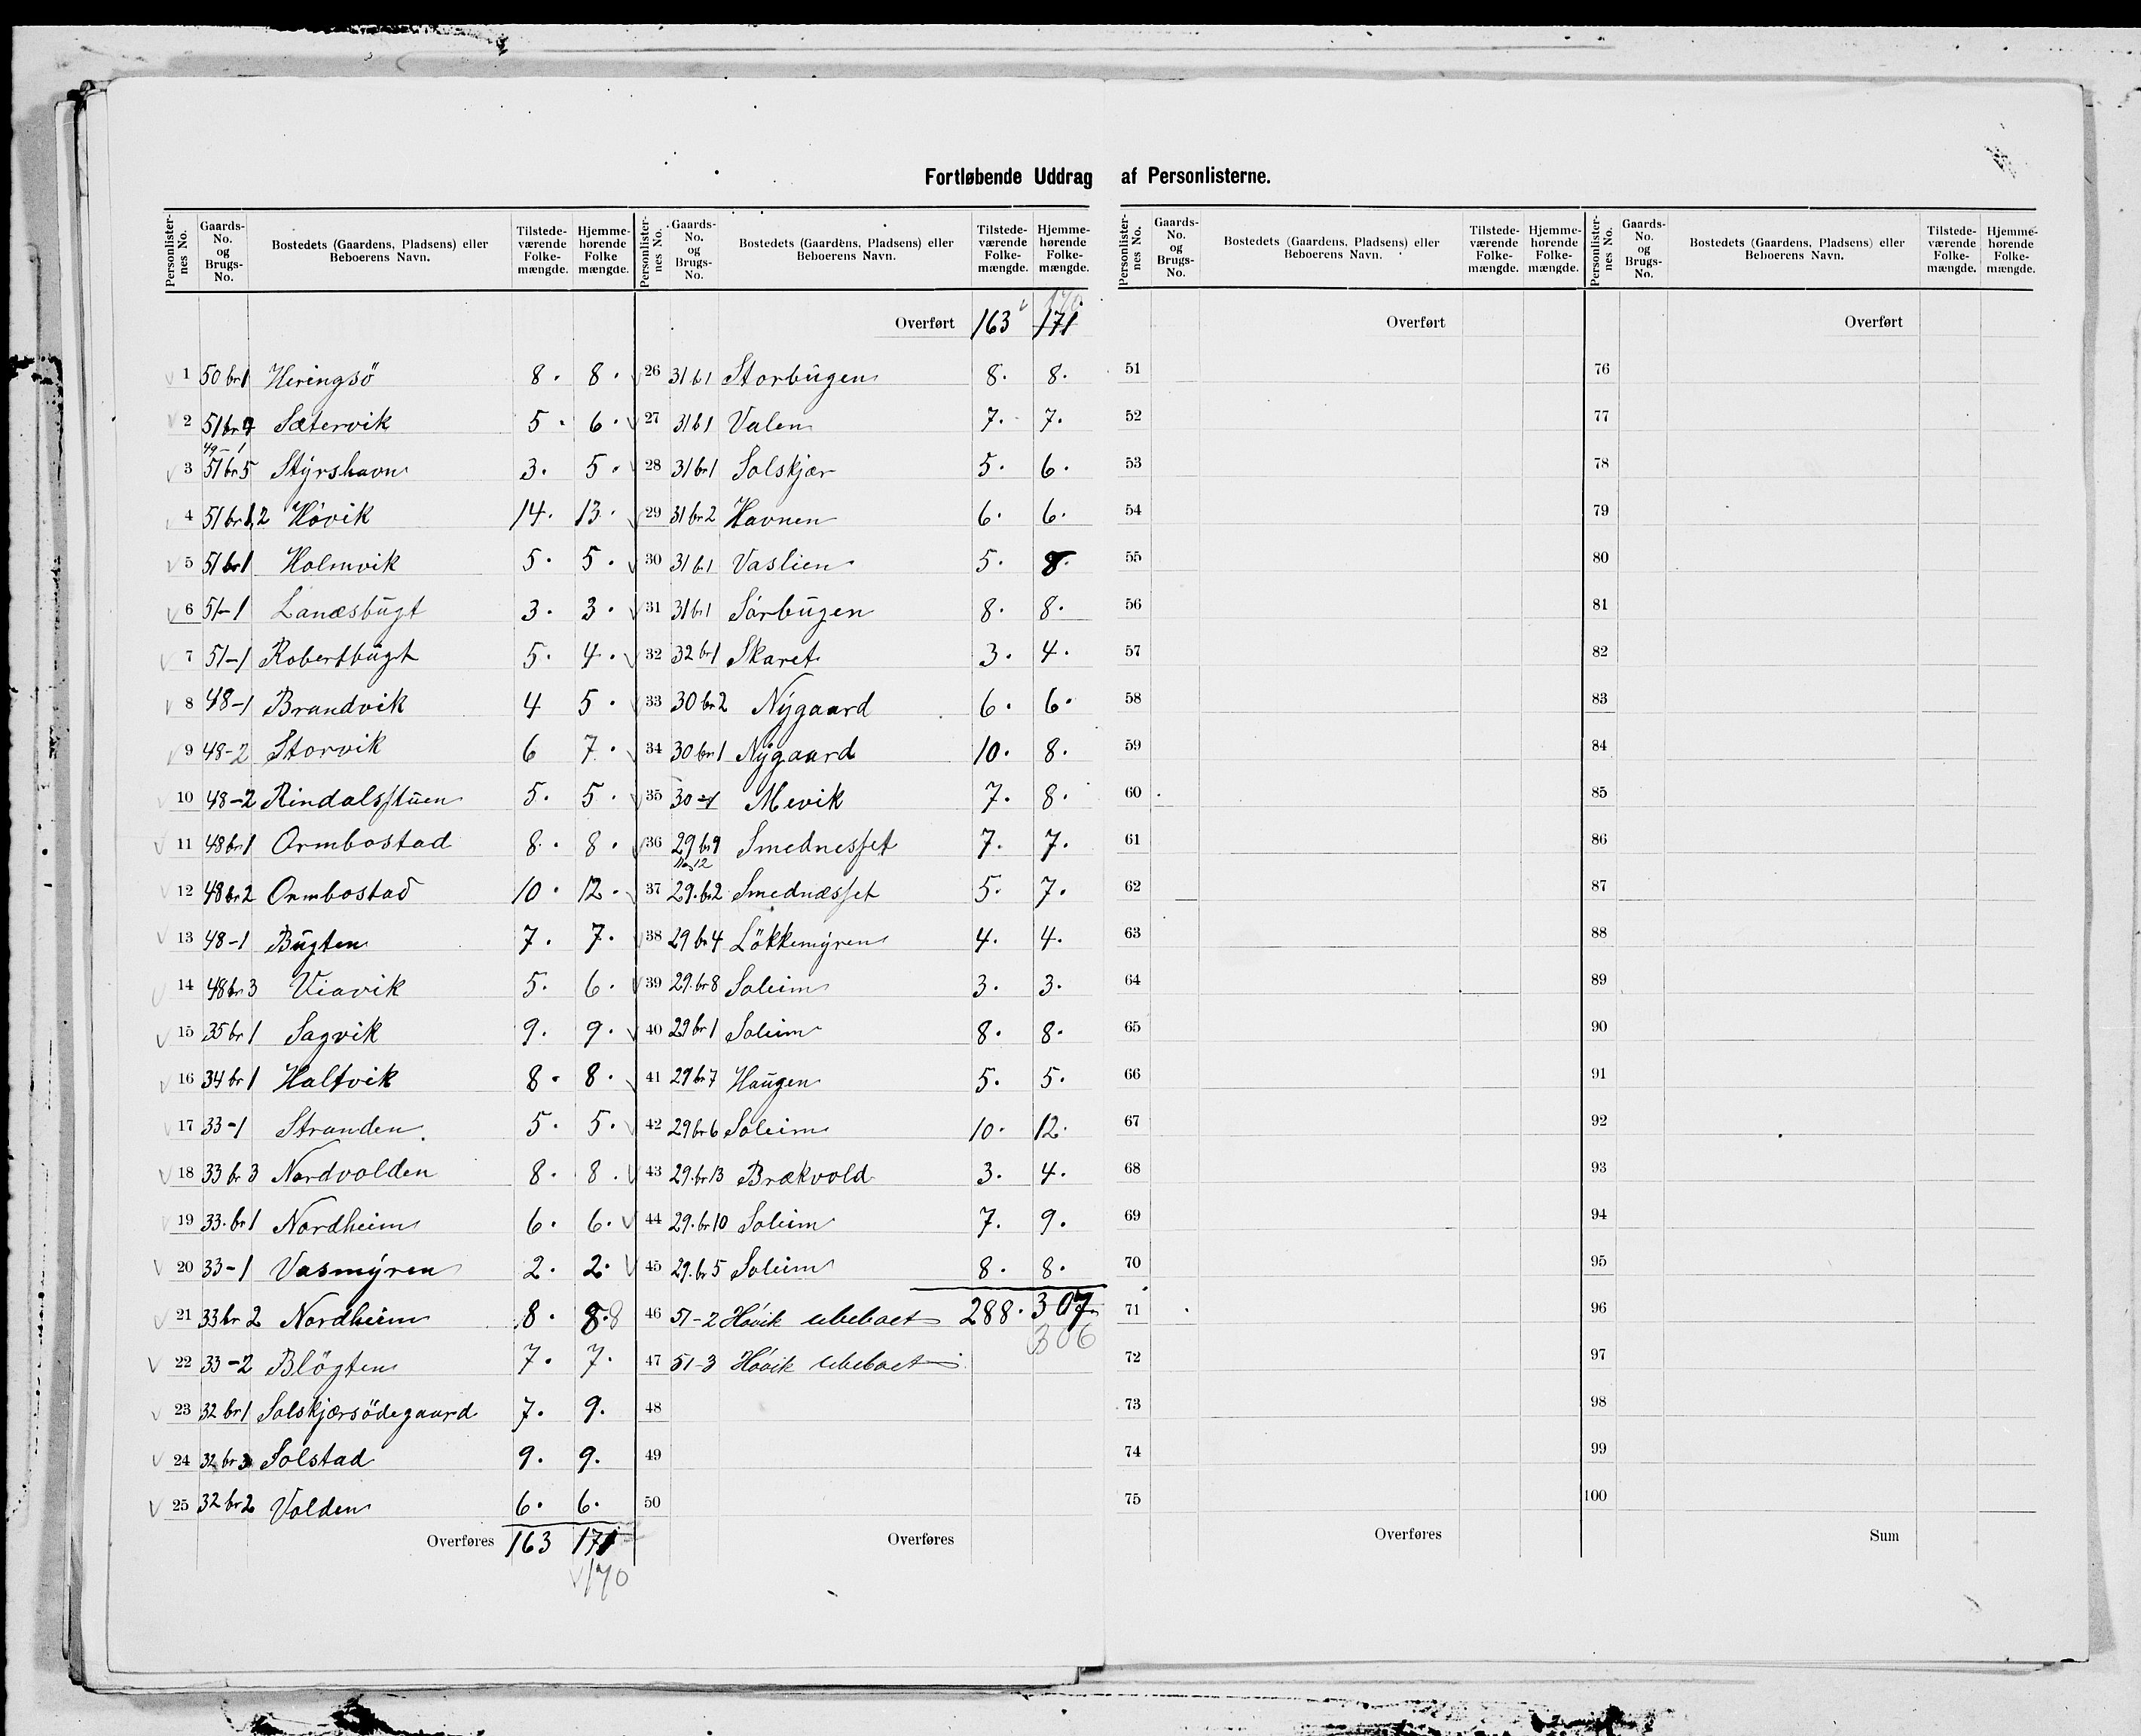 Fortløbende Uddrag af Personlisterne.
Personlisternes No. Gaards-No. og Brugs-No. Bostedets (Gaardens, Pladsens) eller Beboerens Navn. Tilstede-værende Folke-mængde. Hjemme-hørende Folke mængde.
1 50 br 1 Heringsö 8. 8.
2 51 br 7 Sætervik 5. 6.
49-1
3 51 br 5 Stÿrshavn 3. 5.
4 51 br 1,2 Hövik 14. 13.
5 51 br 1 Holmvik 5. 5.
6 51-1 Lanæsbügt 3. 3.
7 51-1 Robertbügt 5. 4.
8 48-1 Brandvik 4 5.
9 48-2 Storvik 6 7.
10 48-2 Rindalsstüen 5. 5.
11 48 br 1 Ormbostad 8. 8.
12 48 br 2 Ormbostad 10. 12.
13 48-1 Bügten 7. 7.
14 48 br 3 Viavik 5. 6.
15 35 br 1 Sagvik 9. 9.
16 34 br 1 Haltvik 8. 8.
17 33-1 Stranden 5. 5.
18 33 br 3 Nordvolden 8. 8.
19 33. br 1 Nordheim 6. 6.
20 33-1 Vasmÿren 2. 2.
21 33 br 2 Nordheim 8. 8. 8
22 33-2 Blögten 7. 7.
23 32 br 1 Solskjærsödegaard 7. 9.
24 32 br 3 Solstad 9. 9.
25 32 br 2 Volden 6. 6.
Overføres 163 171
170
Personlisternes No. Gaards-No. og Brugs-No. Bostedets (Gaardens, Pladsens) eller Beboerens Navn. Tilstede-værende Folke-mængde. Hjemme-hørende Folke-mængde.
170
Overført 163 171
26 31 b 1 Storbügen 8. 8.
27 31 b 1 Valen 7. 7.
28 31 br 1 Solskjær 5. 6.
29 31 br 2 Havnen 6. 6.
30 31 b. 1 Vaslien 5. 8.
31 31 br 1 Sörbügen 8. 8.
32 32 br 1 Skaret 3. 4.
33 30 br 2 Nÿgaard 6. 6.
34 30 br 1 Nÿgaard 10. 8.
35 30-1 Mevik 7. 8.
36 29 br 9 Smednesset 7. 7.
37 29. br 2 Smednæsset 5. 7.
38 29 br 4 Lökkemÿren 4. 4.
39 29. br 8 Soleim 3. 3.
40 29 br 1 Soleim 8. 8.
41 29 br 7 Haügen 5. 5.
42 29 br 6 Soleim 10. 12.
43 29. br 13 Brækvold 3. 4.
44 29. br 10 Soleim 7. 9.
45 29. br 5 Soleim 8. 8.
46 51-2 Hövik ubeboet 288. 307.
306
47 51-3 Hövik ubeboet
48
49
50
Overføres
Personlisternes No. Gaards-No. og Brugs-No. Bostedets (Gaardens, Pladsens) eller Beboerens Navn. Tilstede-værende Folke-mængde. Hjemme-hørende Folke-mængde.
Overført
51
52
53
54
55
56
57
58
59
60
61
62
63
64
65
66
67
68
69
70
71
72
73
74
75
Overføres
Personlisternes No. Gaards-No. og Brugs-No. Bostedets (Gaardens, Pladsens) eller Beboerens Navn. Tilstede-værende Folke-mængde. Hjemme-hørende Folke-mængde.
Overført
76
77
78
79
80
81
82
83
84
85
86
87
88
89
90
91
92
93
94
95
96
97
98
99
100
Sum